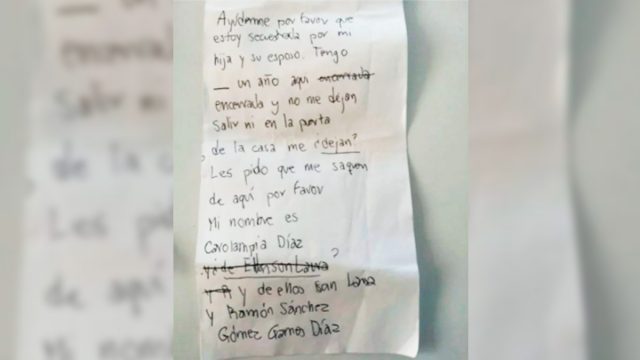 Ayúdenme por favor que
estoy secuestrada por mi
hija y su esposo. Tengo
— un año aquí encerrada
encerrada y no me dejan
salir ni en la puerta
de la casa me ¿dejan?
Les pido que me saquen
de aquí por favor
Mi nombre es
Carolampia Díaz
?
y de ellos son
y Ramón Sánchez
Gómez Díaz